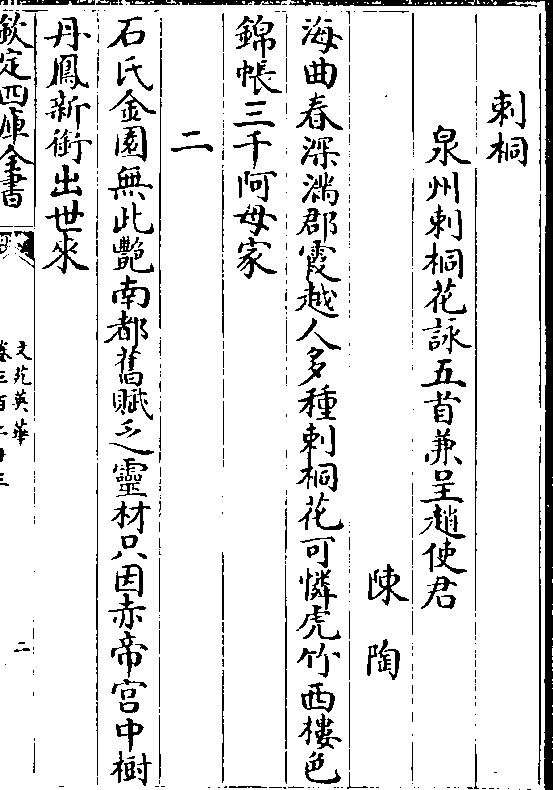 刺桐
泉州刺桐花詠五首兼呈趙使君
陳陶
海曲春深滿郡霞越人多種刺桐花可憐虎竹西樓色
錦帳三千阿母家
二
石氏金園無此艷南都舊賦乏靈材只因赤帝宫中樹
丹鳳新銜出世來
欽定四庫全書
文苑英華
二